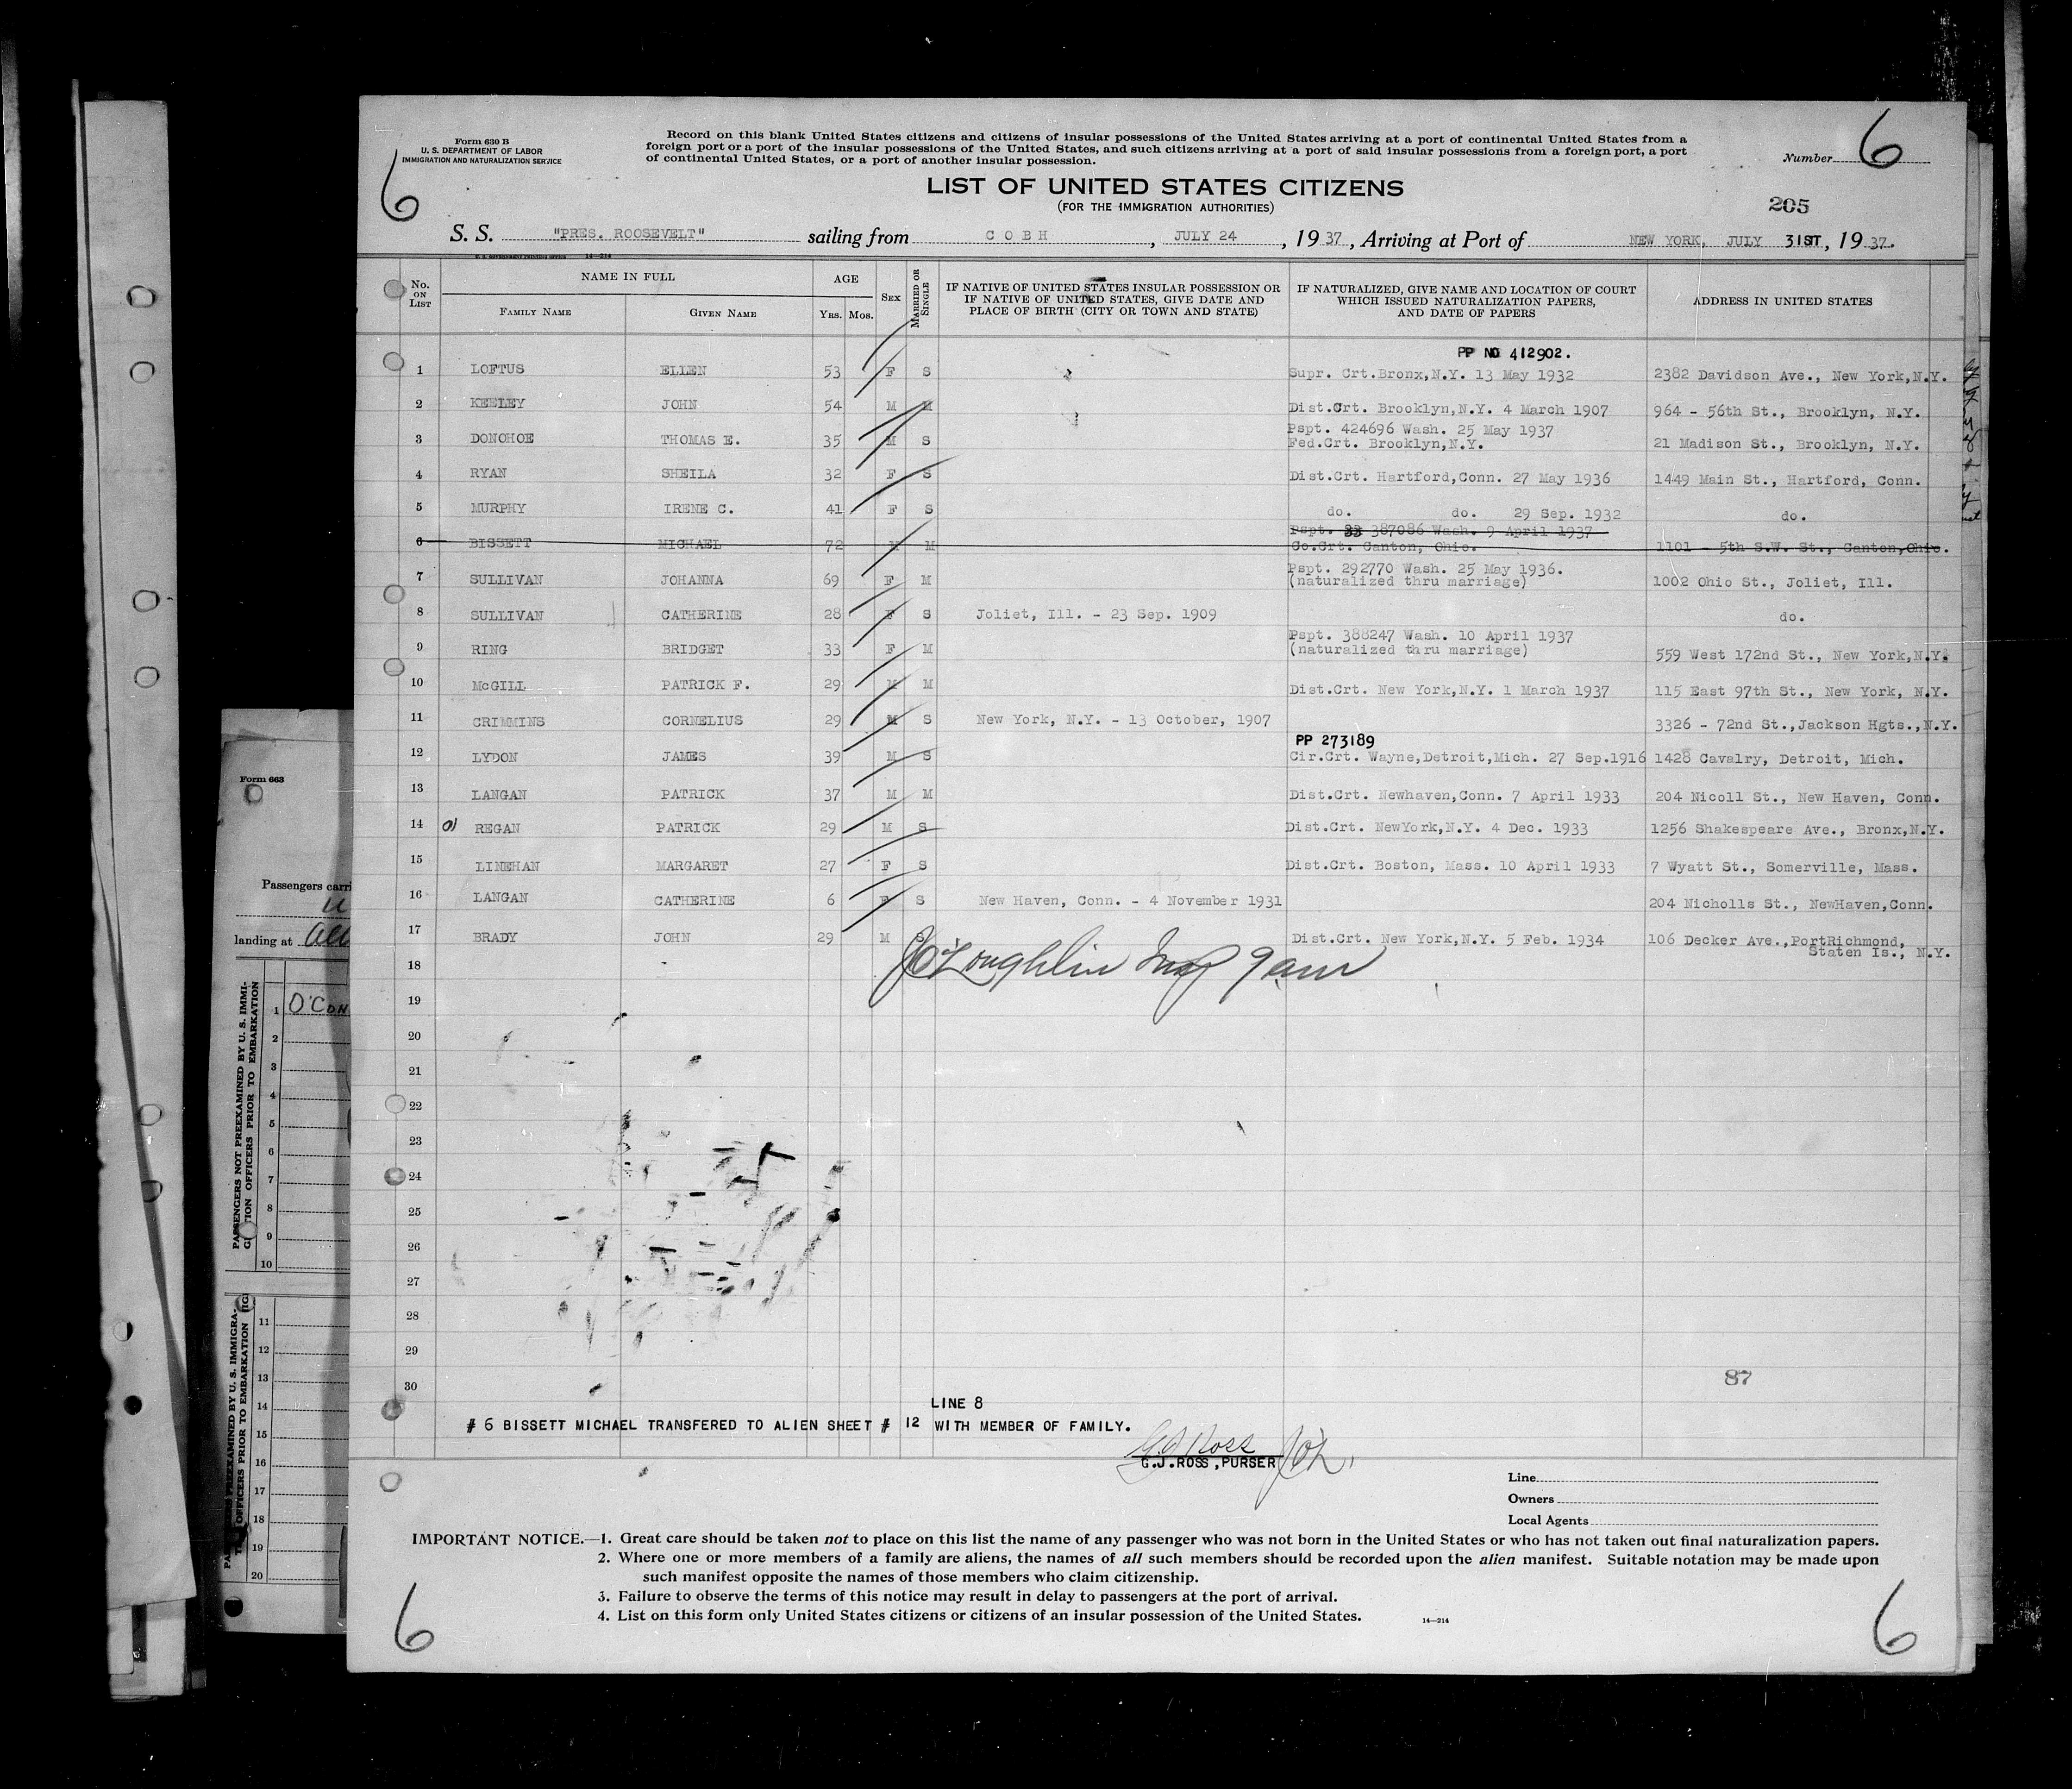 Form 630 B
U. S. DEPARTMENT OF LABOR
IMMIGRATION AND NATURALIZATION SERVICE
Record on this blank United States citizens and citizens of insular possessions of the United States arriving at a port of continental United States from a
foreign port or a port of the insular possessions of the United States, and such citizens arriving at a port of said insular possessions from a foreign port, a port
of continental United States, or a port of another insular possession.
Number 6
6
LIST OF UNITED STATES CITIZENS
(FOR THE IMMIGRATION AUTHORITIES)
205
S. S. "PRES. ROOSEVELT" sailing from COBH, JULY 24, 1937, Arriving at Port of NEW YORK, JULY 31ST, 1937.
No. ON LIST
NAME IN FULL
FAMILY NAME
GIVEN NAME
AGE
YRS. MOS.
SEX
MARRIED OR SINGLE
IF NATIVE OF UNITED STATES INSULAR POSSESSION OR
IF NATIVE OF UNITED STATES, GIVE DATE AND
PLACE OF BIRTH (CITY OR TOWN AND STATE)
IF NATURALIZED, GIVE NAME AND LOCATION OF COURT
WHICH ISSUED NATURALIZATION PAPERS,
AND DATE OF PAPERS
ADDRESS IN UNITED STATES
PP NO 412902.
1 LOFTUS ELLEN 53 F S Supr. Crt.Bronx,N.Y. 13 May 1932 2382 Davidson Ave., New York,N.Y.
2 KEELEY JOHN 54 M M Dist.Crt. Brooklyn,N.Y. 4 March 1907 964 - 56th St., Brooklyn, N.Y.
Pspt. 424696 Wash. 25 May 1937
3 DONOHOE THOMAS E. 35 M S Fed.Crt. Brooklyn,N.Y. 21 Madison St., Brooklyn, N.Y.
4 RYAN SHEILA 32 F S Dist.Crt. Hartford,Conn. 27 May 1936 1449 Main St., Hartford, Conn.
5 MURPHY IRENE C. 41 F S do. do. 29 Sep. 1932 do.
Pspt. 387086 Wash. 9 April 1937
6 BISSETT MICHAEL 72 M M Co.Crt. Canton, Ohio. 1101 - 5th S.W. St., Canton,Ohio.
Pspt. 292770 Wash. 25 May 1936.
7 SULLIVAN JOHANNA 69 F M (naturalized thru marriage) 1002 Ohio St., Joliet, Ill.
8 SULLIVAN CATHERINE 28 F S Joliet, Ill. - 23 Sep. 1909 do.
Pspt. 388247 Wash. 10 April 1937
9 RING BRIDGET 33 F M (naturalized thru marriage) 559 West 172nd St., New York,N.Y.
10 McGILL PATRICK F. 29 M M Dist.Crt. New York,N.Y. 1 March 1937 115 East 97th St., New York, N.Y.
11 CRIMMINS CORNELIUS 29 M S New York, N.Y. - 13 October, 1907 3326 - 72nd St.,Jackson Hgts.,N.Y.
PP 273189
12 LYDON JAMES 39 M S Cir.Crt. Wayne,Detroit,Mich. 27 Sep.1916 1428 Cavalry, Detroit, Mich.
13 LANGAN PATRICK 37 M M Dist.Crt. Newhaven,Conn. 7 April 1933 204 Nicoll St., New Haven, Conn.
14 REGAN PATRICK 29 M S Dist.Crt. NewYork,N.Y. 4 Dec. 1933 1256 Shakespeare Ave., Bronx,N.Y.
15 LINEHAN MARGARET 27 F S Dist.Crt. Boston, Mass. 10 April 1933 7 Wyatt St., Somerville, Mass.
16 LANGAN CATHERINE 6 F S New Haven, Conn. - 4 November 1931 204 Nicholls St., NewHaven,Conn.
17 BRADY JOHN 29 M S Dist.Crt. New York,N.Y. 5 Feb. 1934 106 Decker Ave.,PortRichmond,
Staten Is., N.Y.
J O'Loughlin Insp 9 am
18
19
20
21
22
23
24
25
26
27
28
29
30
87
LINE 8
# 6 BISSETT MICHAEL TRANSFERED TO ALIEN SHEET # 12 WITH MEMBER OF FAMILY.
G J Ross
G.J.ROSS,PURSER
JO'L
Line
Owners
Local Agents
IMPORTANT NOTICE.—1. Great care should be taken not to place on this list the name of any passenger who was not born in the United States or who has not taken out final naturalization papers.
2. Where one or more members of a family are aliens, the names of all such members should be recorded upon the alien manifest. Suitable notation may be made upon
such manifest opposite the names of those members who claim citizenship.
3. Failure to observe the terms of this notice may result in delay to passengers at the port of arrival.
4. List on this form only United States citizens or citizens of an insular possession of the United States.
14—214
6
6
Form 663
Passengers carri
landing at
PASSENGERS NOT PREEXAMINED BY U. S. IMMI-
GRATION OFFICERS PRIOR TO EMBARKATION
1 O'Con
2
3
4
5
6
7
8
9
10
11
12
13
14
15
16
17
18
19
20